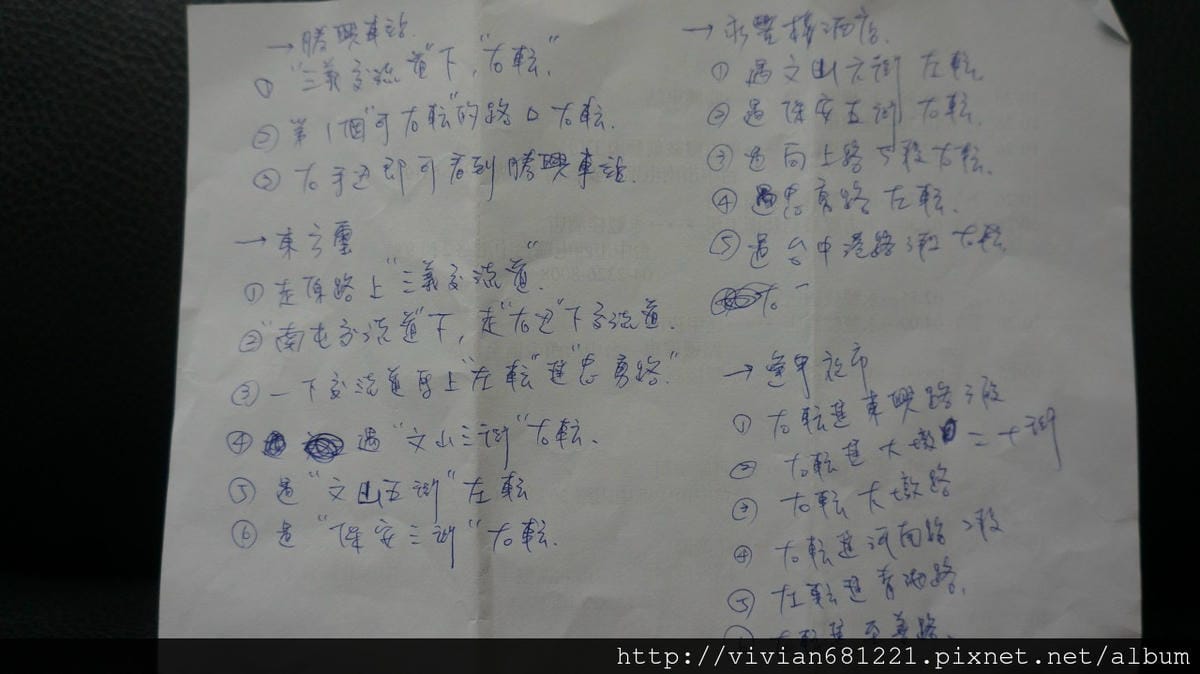 → 勝興車站.
① "三義交流道"下, "右転"
② 第1個"可右転"的路口右転.
③ 右手边即可看到勝興車站.
→ 東方璽
① 走原路上"三義交流道".
② "南屯交流道"下, 走"右边"下交流道.
③ 一下交流道馬上"左転"進"忠勇路"
④ 過"文山三街"右転.
⑤ 過"文山五街"左転
⑥ 過"保安三街"右転.
→ 永豐棧酒店.
① 遇文山六街左転.
② 遇保安五街右転.
③ 遇向上路5段右転.
④ 遇忠勇路左転.
⑤ 遇台中港路3段右転.
右一
→ 逢甲夜市
① 右転進東興路3段
② 右転進大墩二十街
③ 右転大墩路
④ 右転進河南路2段
⑤ 左転進青海路.
http://vivian681221.pixnet.net/album